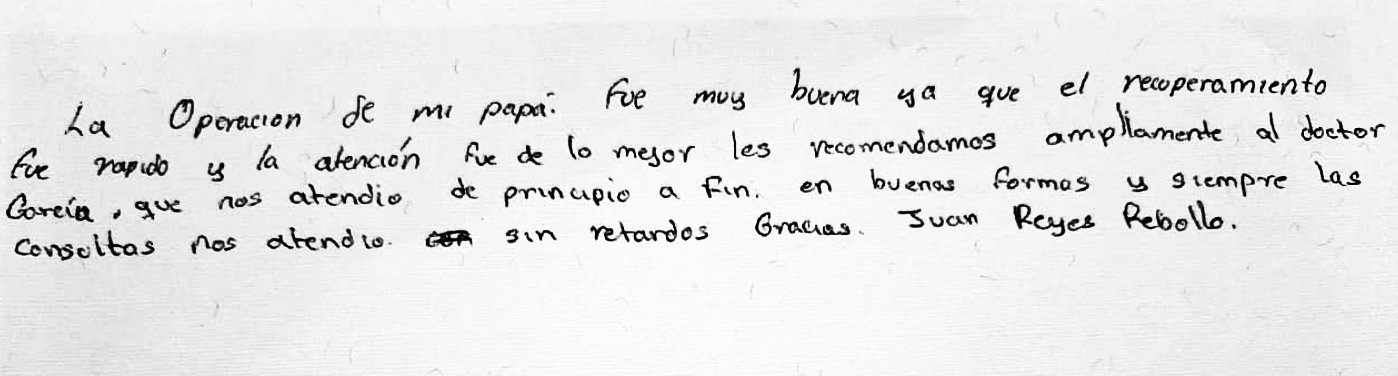 La Operacion de mi papá. fue muy buena ya que el recuperamiento
fue rapido y la atención fue de lo mejor les recomendamos ampliamente al doctor
García, que nos atendio de principio a fin. en buenas formas y siempre las
Consultas nos atendio. con sin retardos Gracias. Juan Reyes Rebollo.